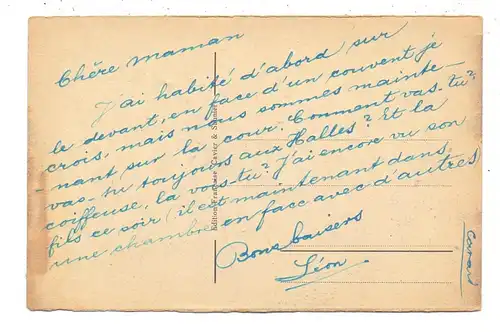 Chère maman
J'ai habité d'abord sur
le devant, en face d'un couvent je
crois, mais nous sommes mainte-
-nant sur la cour. Comment vas-tu?
vas-tu toujours aux Halles? Et la
coiffeuse, la vois-tu? J'ai encore vu son
fils ce soir (il est maintenant dans
une chambre en face avec d'autres
Bons baisers
Léon
Edition Française